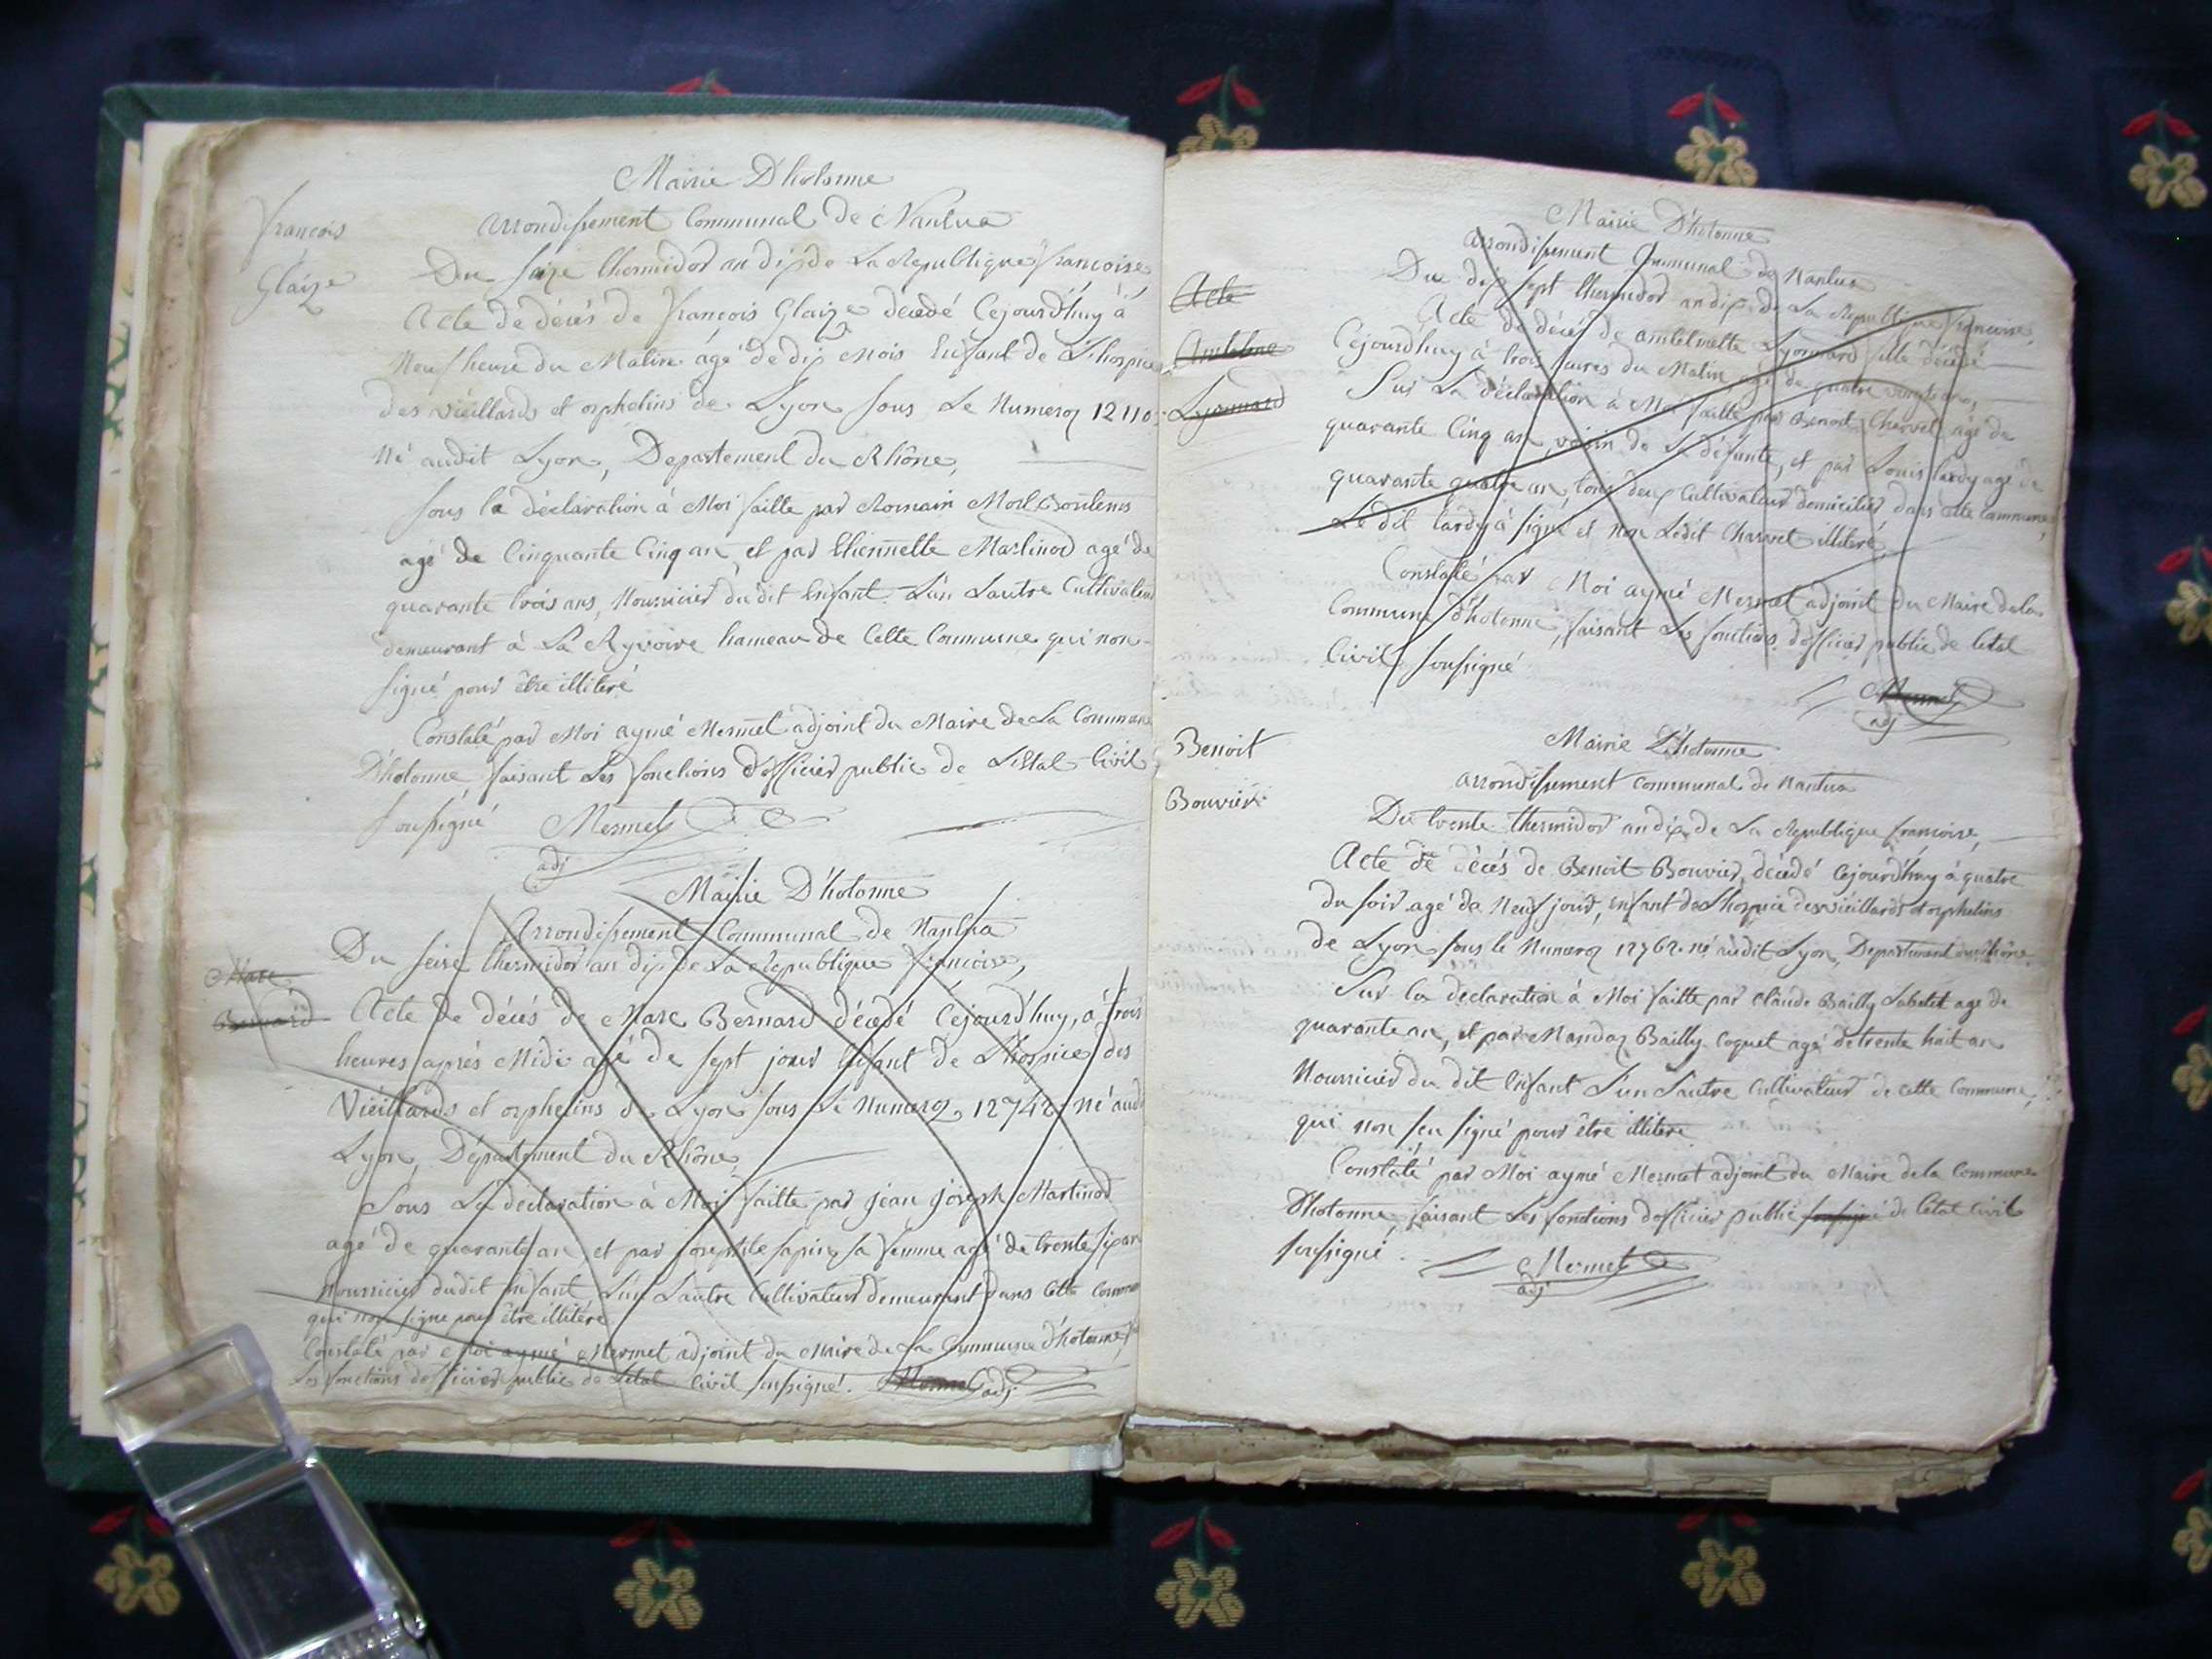 Mairie D'hotonne
arrondissement Communal de Nantua
françois
Glaize
Du saize thermidor an dix de La Republique françoise
Acte de décés de françois Glaize decedé Cejourd'huy à
Neuf heure du Matin agé de dix Mois Enfant de L'hospice
des vieillards et orphelins de Lyon sous Le Numeroz 12110
Né audit Lyon, Departement du Rhône,
sous la déclaration à Moi faitte par Romain
agé de Cinquante Cinq an, et par thiennette Martinod agé de
quarante trois ans, Nourricier dudit Enfant L'un Lautre Cultivateur
demeurant à La Ryvoire hameau de Cette Commune qui non
signé pour être illiteré
Constaté par Moi aymé Mermet adjoint du Maire de La Commune
D'hotonne, faisant Les fonctions d'officier public de L'Etat Civil
soussigné Mermet
adj
Mairie D'hotonne
Arrondissement Communal de Nantua
Marc
Bernard
Du seise thermidor an dix de La Republique françoise,
Acte de décés de Marc Bernard décedé Cejourd'huy, à trois
heures après Midi agé de sept jours Enfant de L'hospice des
Vieillards et orphelins de Lyon sous Le Numeroz 12742 Né audit
Lyon, Département du Rhône,
Sous La déclaration à Moi faitte par jean joseph Martinod
agé de quarante an, et par josephte sa femme agé de trente six an
Nourricier dudit Enfant, L'un Lautre Cultivateur demeurant dans Cette Commune
qui non signé pour être illiteré
Constaté par Moi aymé Mermet adjoint du Maire de La Commune d'hotonne,
Les fonctions d'officier public de Letat Civil soussigné. Mermet adj
Mairie D'hotonne
arrondissement Communal de Nantua
Acte
Antelme
Lyonnard
Du dix sept thermidor an dix de La Republique françoise,
Acte de décés de antelmette Lyonnard fille décedé
Cejourd'huy à trois heures du Matin agé de quatre vingts ans,
Sur La déclaration à Moi faitte par Benoit Charvet agé de
quarante Cinq an, voisin de La défunte, et par Louis tardy agé de
quarante quatre an, tous deux Cultivateur domicilier dans Cette Commune,
Le dit tardy à signé et Non Ledit Charvet illiteré
Constaté par Moi aymé Mermet adjoint du Maire dela
Commune d'hotonne, faisant Les fonctions d'officier public de letat
Civil soussigné
Mermet
adj
Mairie D'hotonne
arrondissement communal de Nantua
Benoit
Bouvier
Du trente thermidor an dix de La Republique françoise,
Acte de décés de Benoit Bouvier, décedé Cejourd'huy à quatre
du soir agé de Neuf jour, enfant de L'hospice des vieillards et orphelins
de Lyon sous le Numeroz 12762 né audit Lyon, Departement du Rhône
Sur la déclaration à Moi faitte par claude Bailly agé de
quarante an, et par Bailly Coquet agé de trente huit an
Nourricier du dit Enfant L'un Lautre Cultivateur de cette Commune,
qui non seu signé pour être illiteré
Constaté par Moi aymé Mermet adjoint du Maire dela Commune
D'hotonne, faisant Les fonctions d'officier public soussigné de letat Civil
soussigné. Mermet
adj